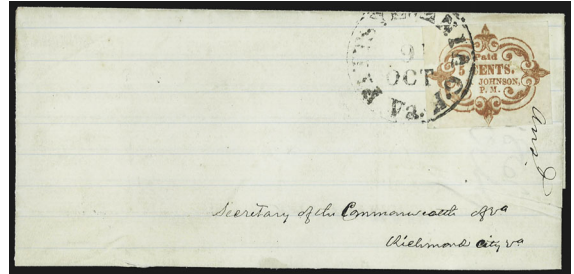 9
OCT
Va.
Paid
5
CENTS.
JOHNSON,
P. M.
Ans'd
Secretary of the Commonwealth of Va
Richmond city Va